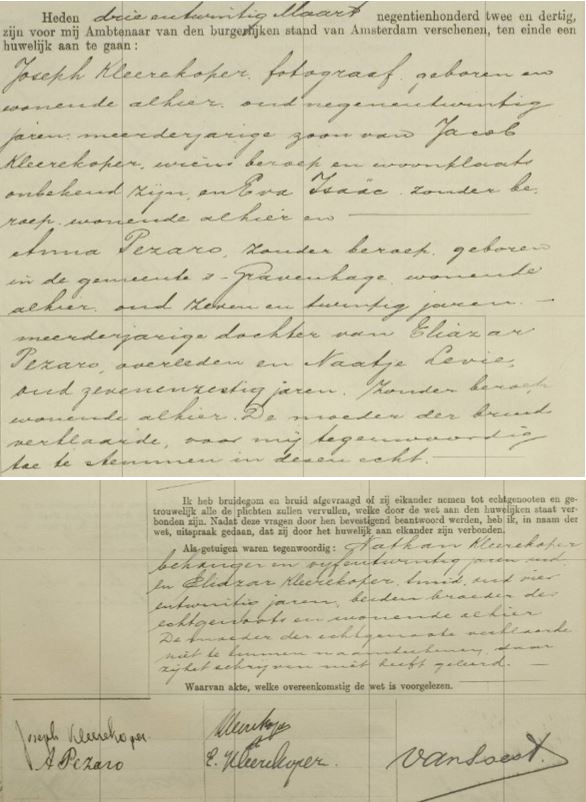 Heden drie en twintig Maart negentienhonderd twee en dertig,
zijn voor mij Ambtenaar van den burgerlijken stand van Amsterdam verschenen, ten einde een
huwelijk aan te gaan:
Joseph Kleerekoper, fotograaf, geboren en
wonende alhier, oud negenentwintig
jaren, meerderjarige zoon van Jacob
Kleerekoper, wiens beroep en woonplaats
onbekend zijn, en Eva Isaäc, zonder be-
roep, wonende alhier en
Anna Pezaro, zonder beroep, geboren
in de gemeente 's-Gravenhage, wonende
alhier, oud zeven en twintig jaren,
meerderjarige dochter van Eliazar
Pezaro, overleden en Naatje Levie,
oud zevenenzestig jaren, zonder beroep,
wonende alhier. De moeder der bruid
verklaarde, voor mij tegenwoordig
toe te stemmen in dezen echt.
Ik heb bruidegom en bruid afgevraagd of zij elkander nemen tot echtgenooten en ge-
trouwelijk alle de plichten zullen vervullen, welke door de wet aan den huwelijken staat ver-
bonden zijn. Nadat deze vragen door hen bevestigend beantwoord werden, heb ik, in naam der
wet, uitspraak gedaan, dat zij door het huwelijk aan elkander zijn verbonden.
Als getuigen waren tegenwoordig: Nathan Kleerekoper
behanger en vijfentwintig jaren oud
en Eliazar Kleerekoper, smid, oud vier
entwintig jaren, beiden broeder des
echtgenoots en wonende alhier
De moeder der echtgenoote verklaarde
niet te kunnen naamteekenen, daar
zij het schrijven niet heeft geleerd.
Waarvan akte, welke overeenkomstig de wet is voorgelezen.
Joseph Kleerekoper
A Pezaro
Kleerekoper
E. Kleerekoper.
van Soest.